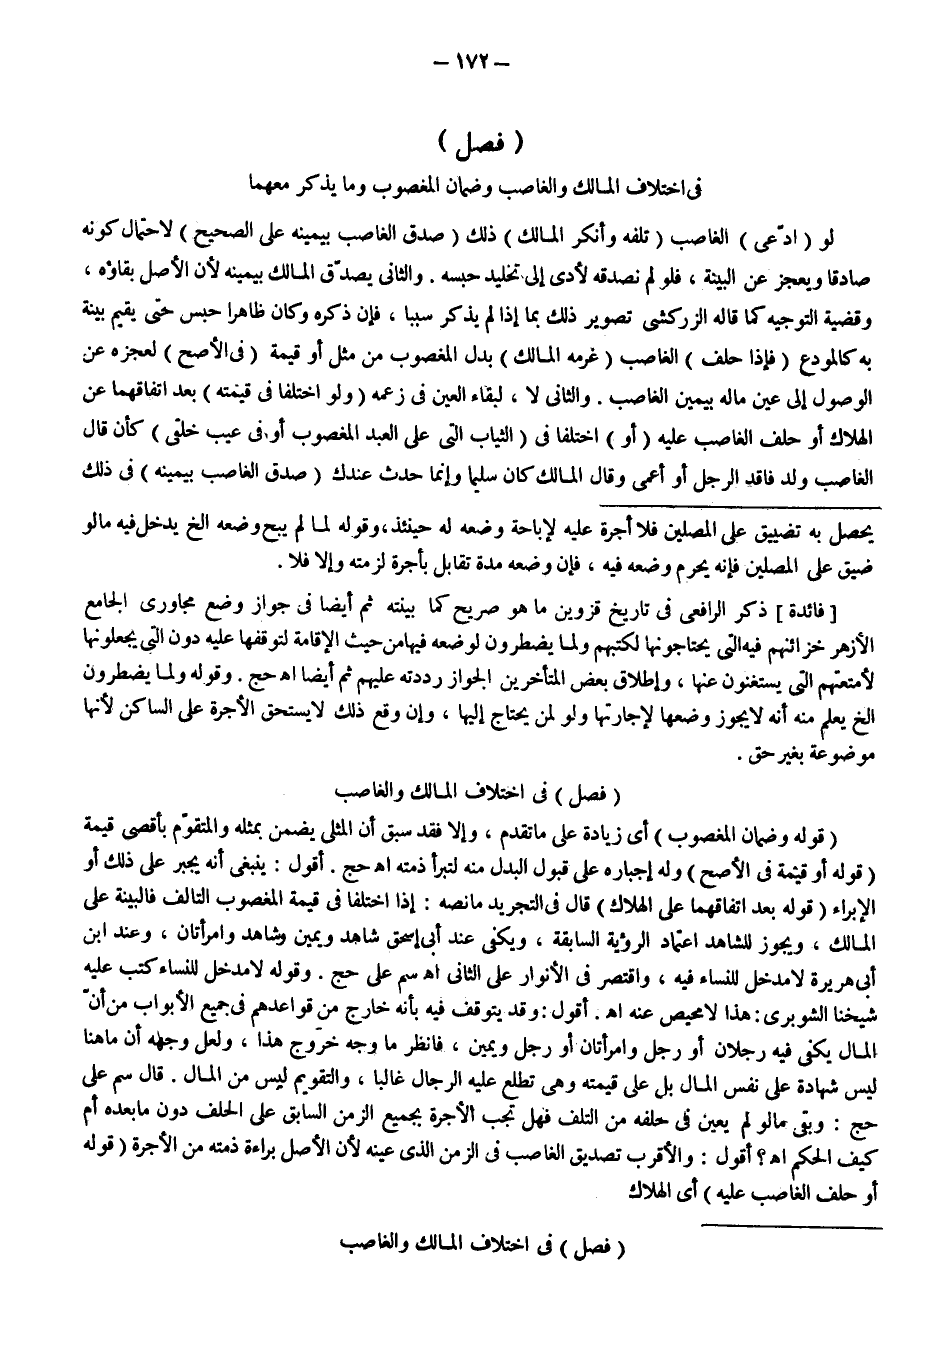 – ١٧٢ –
( فصل )
فى اختلاف المالك والغاصب وضمان المغصوب وما يذكر معهما
لو ( ادّعى ) الغاصب ( تلفه وأنكر المالك ) ذلك ( صدق الغاصب بيمينه على الصحيح ) لاحتمال كونه
صادقا ويعجز عن البينة ، فلو لم نصدقه لأدى إلى تخليد حبسه . والثانى يصدّق المالك بيمينه لأن الأصل بقاؤه ،
وقضية التوجيه كما قاله الزركشى تصوير ذلك بما إذا لم يذكر سببا ، فإن ذكره وكان ظاهرا حبس حتى يقيم بينة
به كالمودع ( فإذا حلف ) الغاصب ( غرمه المالك ) بدل المغصوب من مثل أو قيمة ( فى الأصح ) لعجزه عن
الوصول إلى عين ماله بيمين الغاصب . والثانى لا ، لبقاء العين فى زعمه ( ولو اختلفا فى قيمته ) بعد اتفاقهما عن
الهلاك أو حلف الغاصب عليه ( أو ) اختلفا فى ( الثياب التى على العبد المغصوب أو فى عيب خلقى ) كأن قال
الغاصب ولد فاقد الرجل أو أعمى وقال المالك كان سليما وإنما حدث عندك ( صدق الغاصب بيمينه ) فى ذلك
يحصل به تضييق على المصلين فلا أجرة عليه لإباحة وضعه له حينئذ، وقوله لما لم يبح وضعه الخ يدخل فيه مالو
ضيق على المصلين فإنه يحرم وضعه فيه ، فإن وضعه مدة تقابل بأجرة لزمته وإلا فلا .
[ فائدة ] ذكر الرافعى فى تاريخ قزوين ما هو صريح كما بينته ثم أيضا فى جواز وضع مجاورى الجامع
الأزهر خزائنهم فيه التى يحتاجونها لكتبهم ولما يضطرون لوضعه فيها من حيث الإقامة لتوقفها عليه دون التى يجعلونها
لأمتعتهم التى يستغنون عنها ، وإطلاق بعض المتأخرين الجواز رددته عليهم ثم أيضا اه حج . وقوله ولما يضطرون
الخ يعلم منه أنه لايجوز وضعها لإجارتها ولو لمن يحتاج إليها ، وإن وقع ذلك لايستحق الأجرة على الساكن لأنها
موضوعة بغير حق .
( فصل ) فى اختلاف المالك والغاصب
( قوله وضمان المغصوب ) أى زيادة على ماتقدم ، وإلا فقد سبق أن المثلى يضمن بمثله والمتقوّم بأقصى قيمة
( قوله أو قيمة فى الأصح ) وله إجباره على قبول البدل منه لتبرأ ذمته اه حج . أقول : ينبغى أنه يجبر على ذلك أو
الإبراء ( قوله بعد اتفاقهما على الهلاك ) قال فى التجريد مانصه : إذا اختلفا فى قيمة المغصوب التالف فالبينة على
المالك ، ويجوز للشاهد اعتماد الرؤية السابقة ، ويكفى عند أبى إسحق شاهد ويمين وشاهد وامرأتان ، وعند ابن
أبى هريرة لامدخل للنساء فيه ، واقتصر فى الأنوار على الثانى اه سم على حج . وقوله لامدخل للنساء كتب عليه
شيخنا الشوبرى : هذا لامحيص عنه اه . أقول : وقد يتوقف فيه بأنه خارج من قواعدهم فى جميع الأبواب من أنّ
المال يكفى فيه رجلان أو رجل وامرأتان أو رجل ويمين ، فانظر ما وجه خروج هذا ، ولعل وجهه أن ماهنا
ليس شهادة على نفس المال بل على قيمته وهى تطلع عليه الرجال غالبا ، والتقويم ليس من المال . قال سم على
حج : وبقى مالو لم يعين فى حلفه من التلف فهل تجب الأجرة بجميع الزمن السابق على الحلف دون مابعده أم
كيف الحكم اه ؟ أقول : والأقرب تصديق الغاصب فى الزمن الذى عينه لأن الأصل براءة ذمته من الأجرة ( قوله
أو حلف الغاصب عليه ) أى الهلاك
( فصل ) فى اختلاف المالك والغاصب